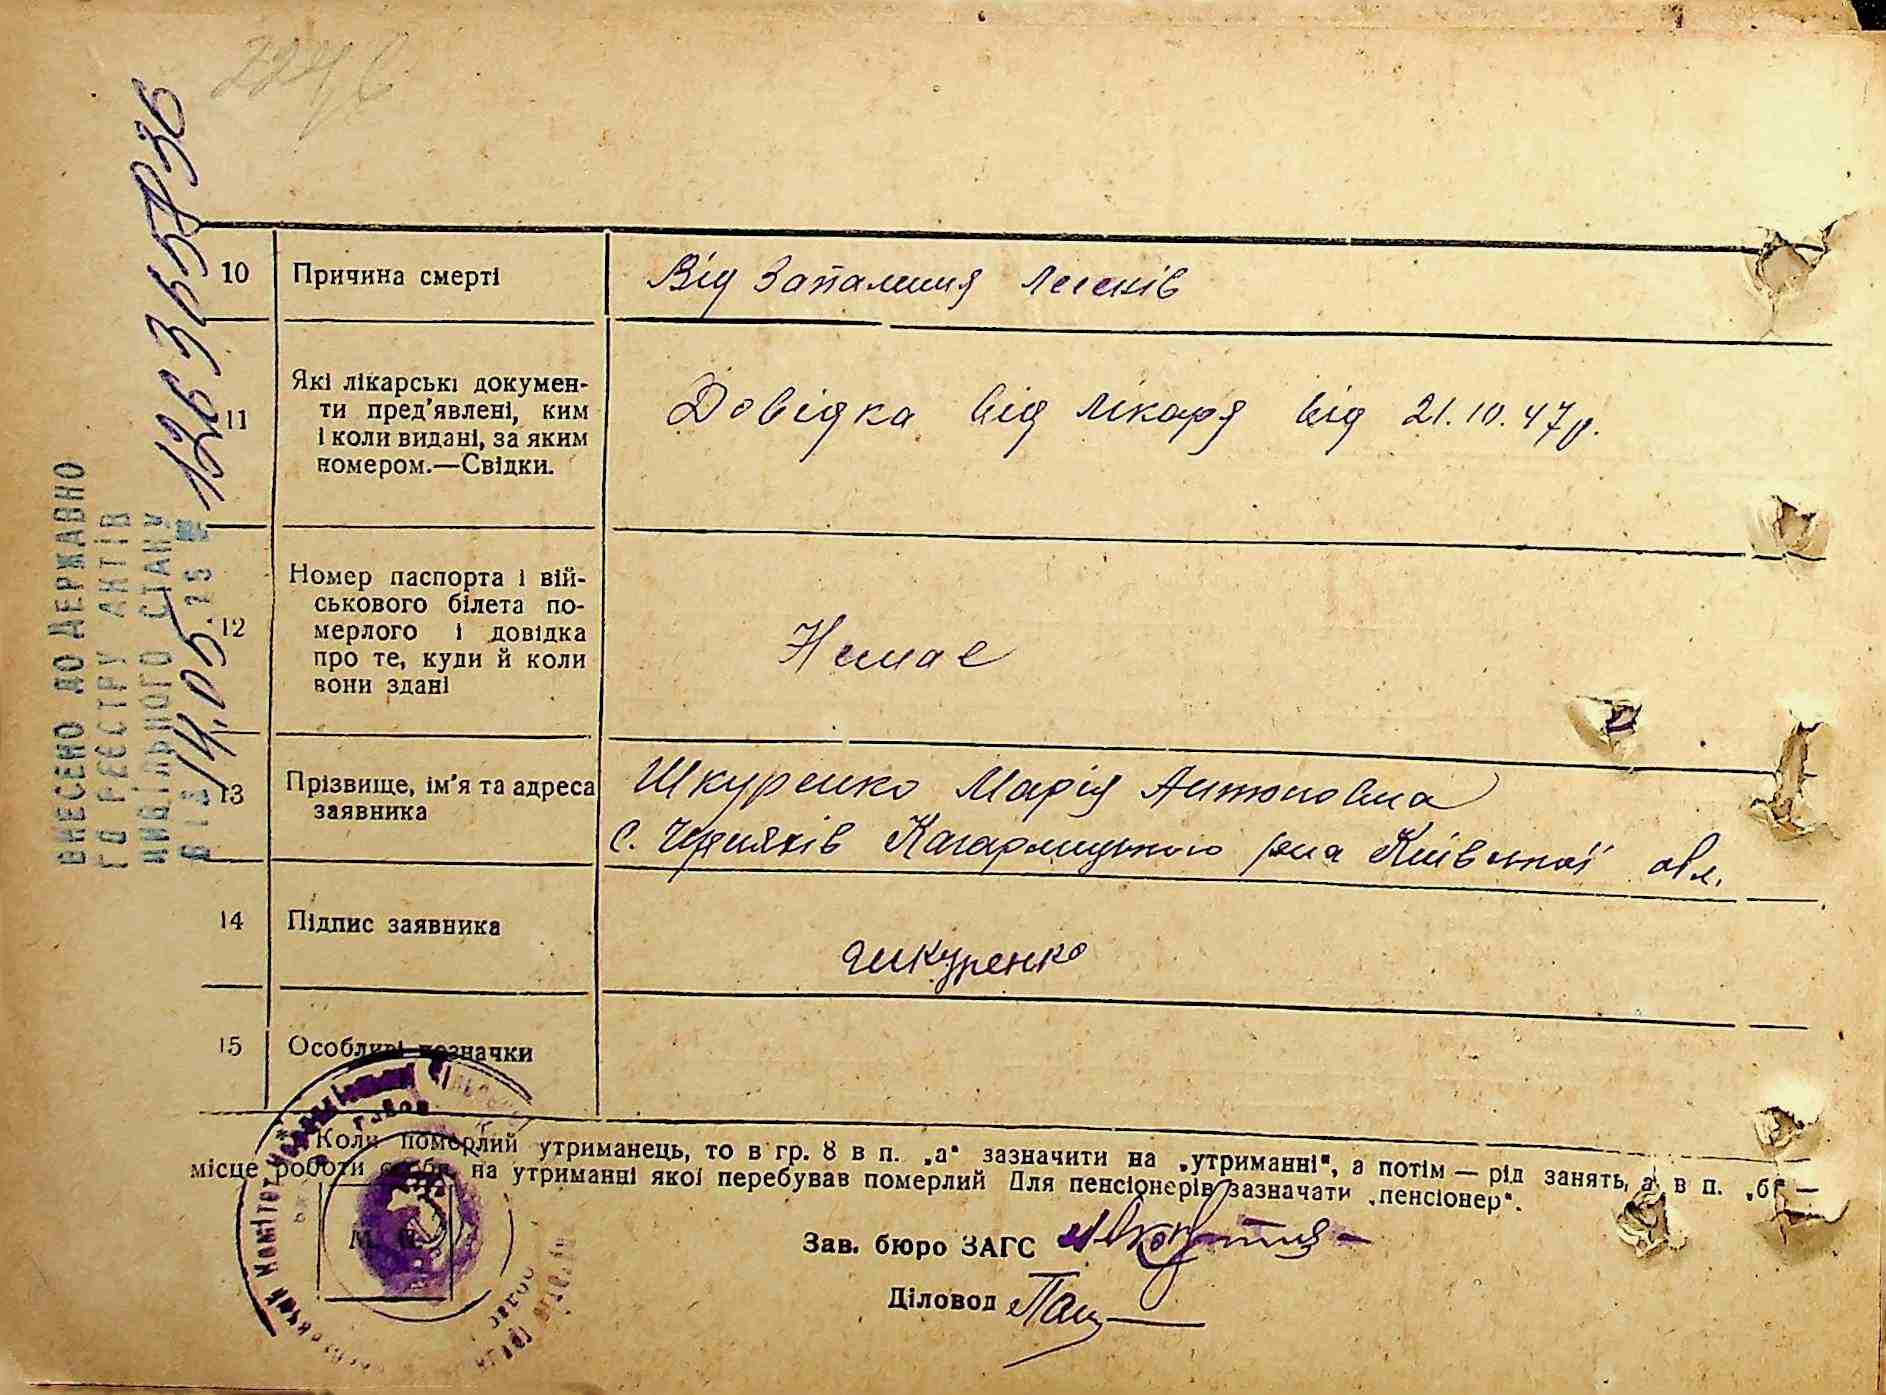 2246
10 Причина смерті Від Запалення легенів
11 Які лікарські докумен-
ти пред'явлені, ким
і коли видані, за яким
номером.—Свідки.
Довідка від лікаря від 21.10.47р.
12 Номер паспорта і вій-
ськового білета по-
мерлого і довідка
про те, куди й коли
вони здані
Немає
13 Прізвище, ім'я та адреса
заявника
Шкуренко Марія Антоновна
с. Черняхів Кагарлицького р-на Київської обл.
14 Підпис заявника
Шкуренко
15 Особливі позначки
Коли померлий утриманець, то в гр. 8 в п. „а“ зазначити на „утриманні“, а потім — рід занять, а в п. „б“ —
місце роботи особи, на утриманні якої перебував померлий Для пенсіонерів зазначати „пенсіонер“.
М.
Зав. бюро ЗАГС
Діловод
ВНЕСЕНО ДО ДЕРЖАВНО
ГО РЕЄСТРУ АКТІВ
ЦИВІЛЬНОГО СТАНУ
ВІД 14.05.25 №